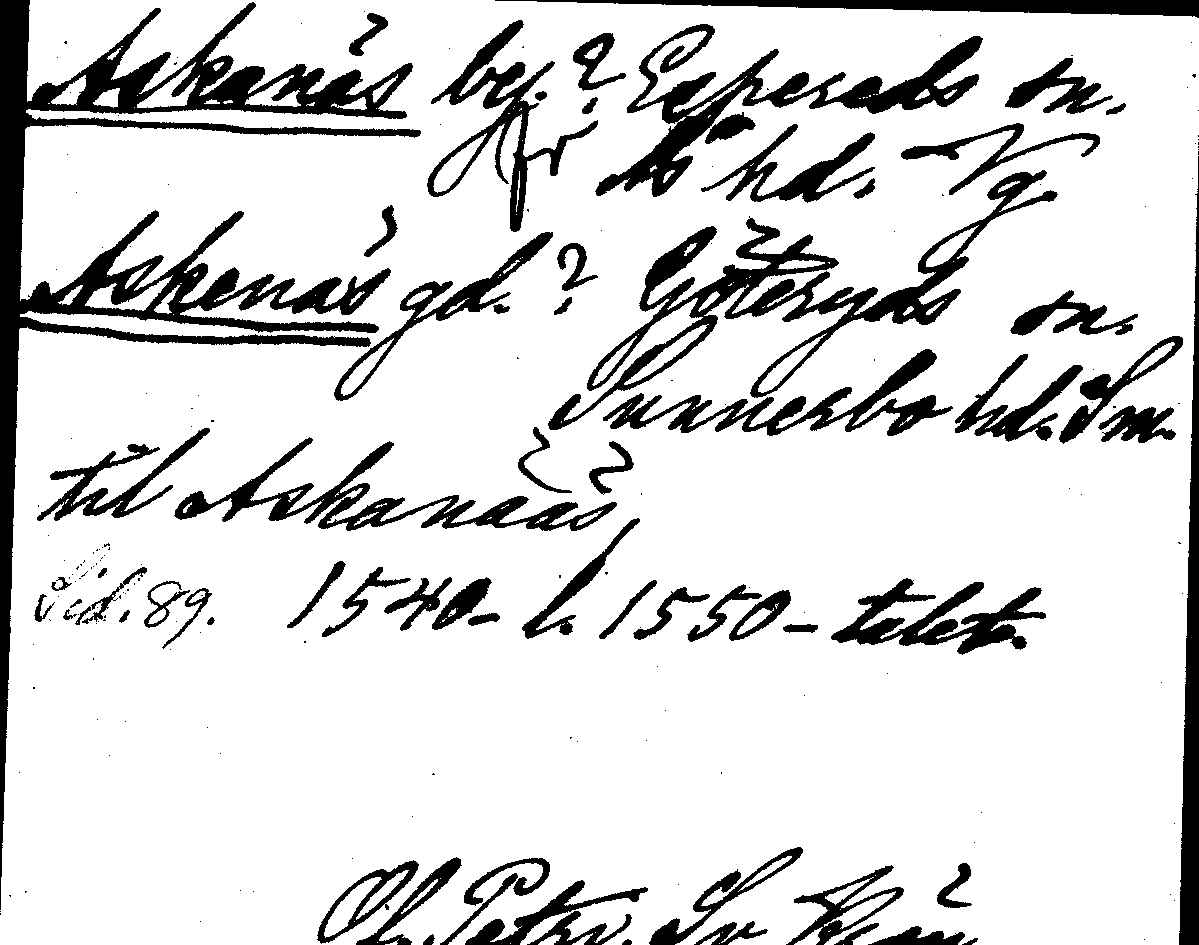 Askanäs by.? Espereds sn.
fr Ås hd. Vg.
Askenäs gd.? Göteryds sn.
Sunnerbo hd. Sm.
til Askanääs,
Sid. 89. 1540- l. 1550-talet.
Ol. Petri. Sv.